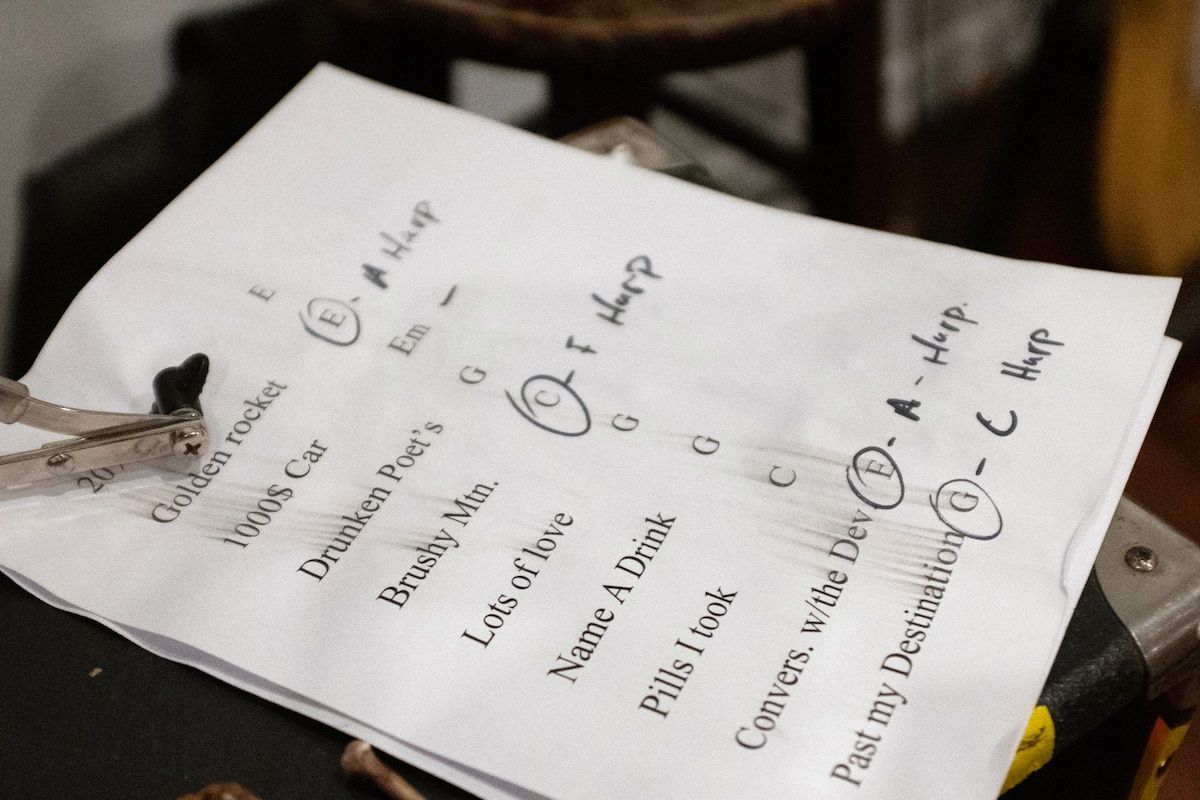 20 E
Golden rocket E - A Harp
1000$ Car Em -
Drunken Poet's G
Brushy Mtn. C - F Harp
Lots of love G
Name A Drink G
Pills I took C
Convers. w/the Dev E - A - Harp.
Past my Destination G - C Harp